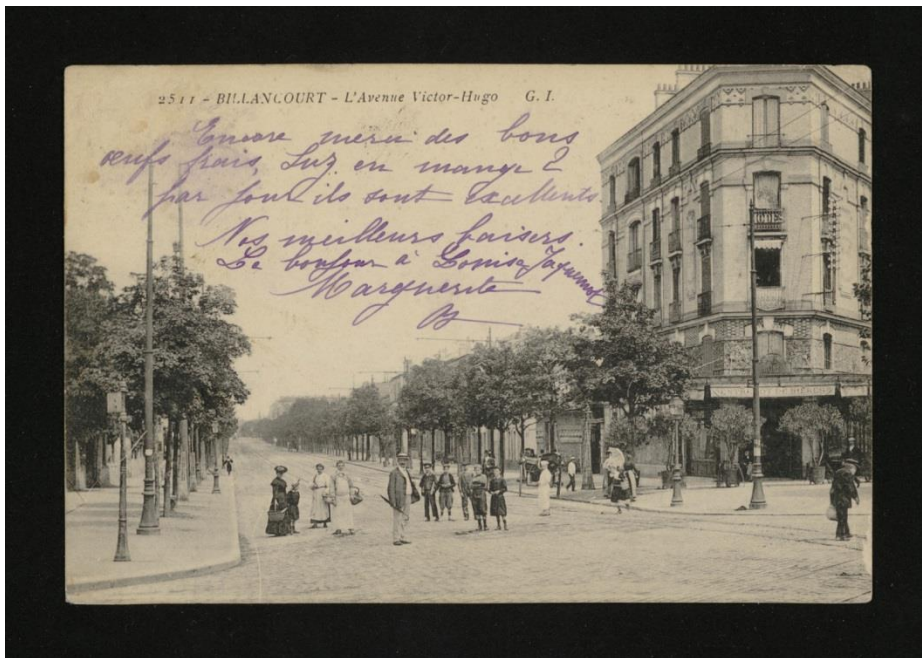 2511 - BILLANCOURT - L'Avenue Victor-Hugo G. I.
Encore merci des bons
œufs frais, Suz en mange 2
par jour ils sont excellents
Nos meilleurs baisers.
Le bonjour à Louise
Marguerite
MODES